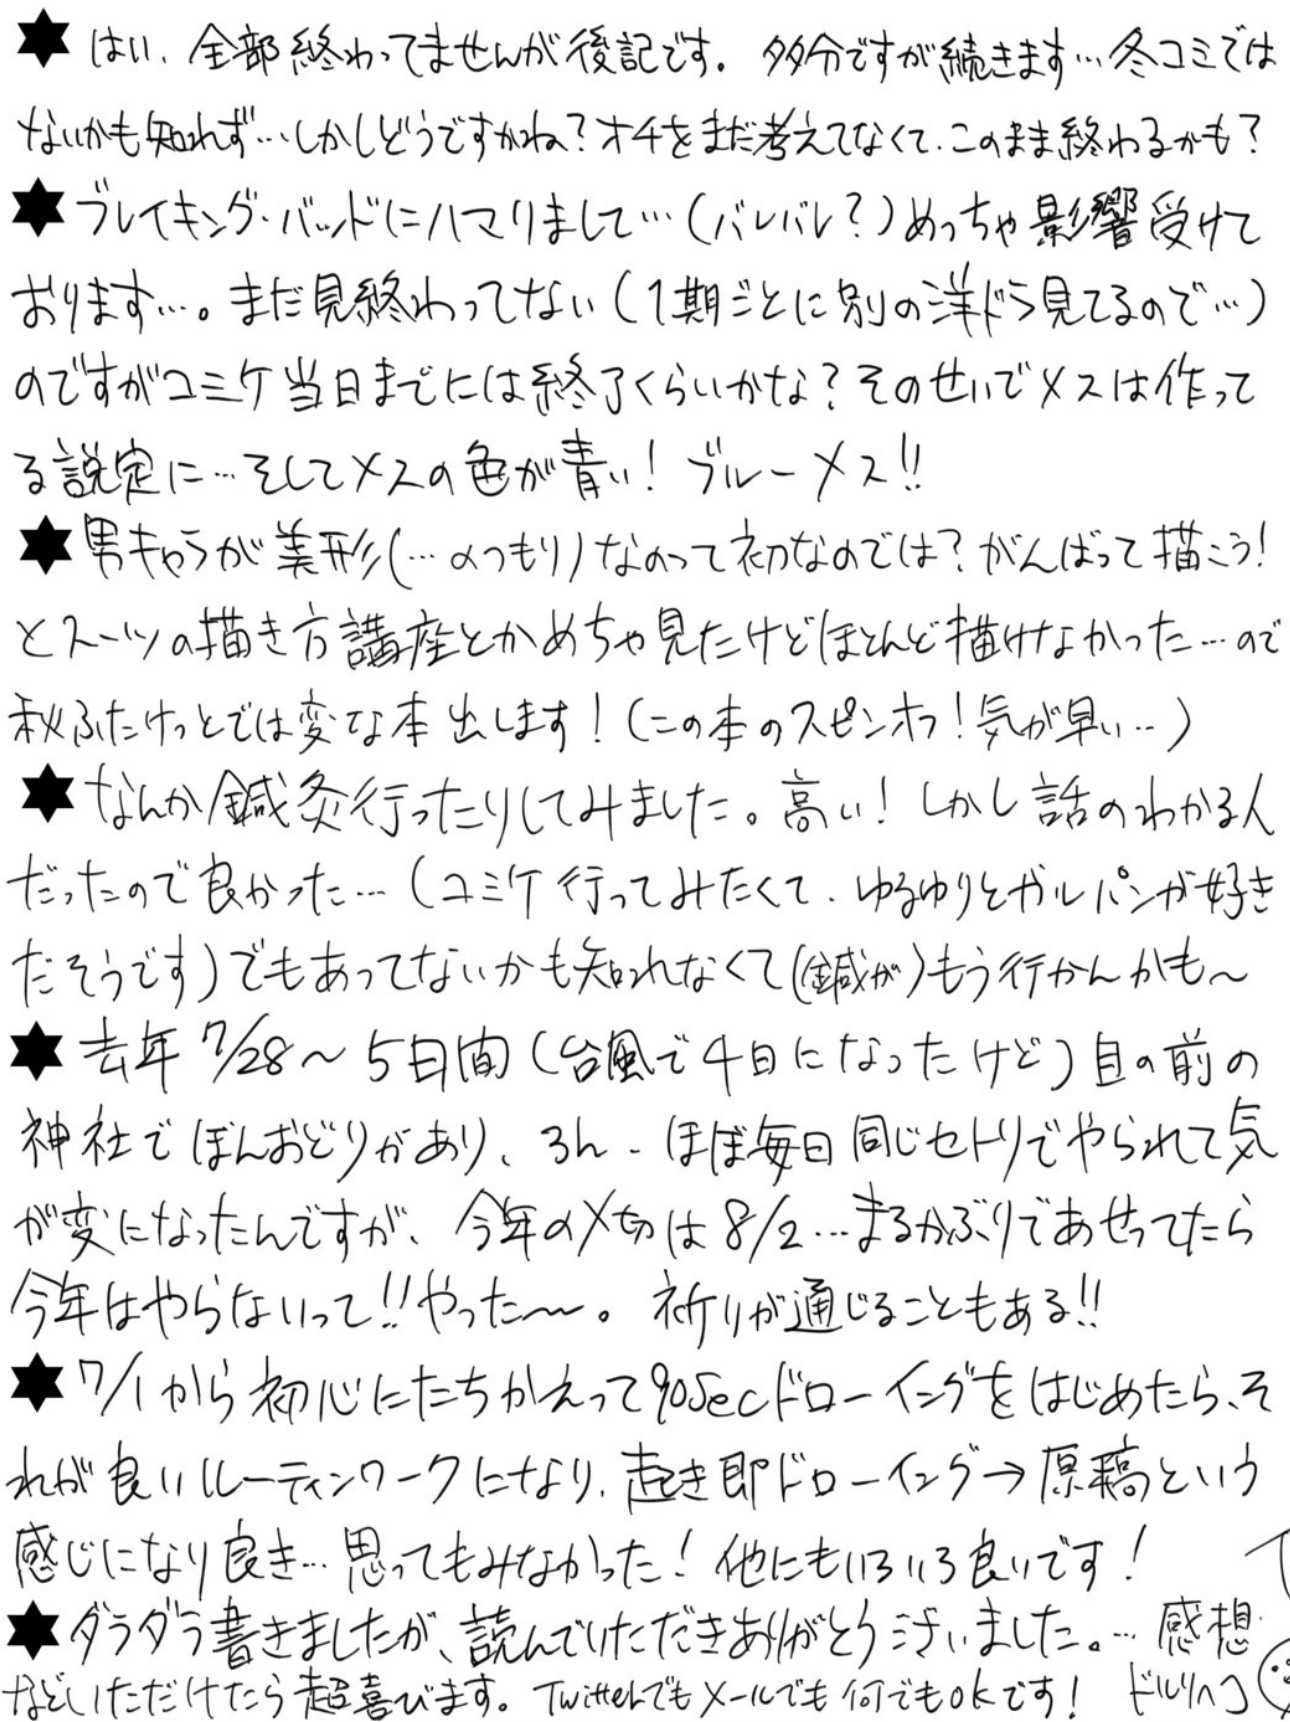 ★はい、全部終わってませんが後記です。多分ですが続きます…冬コミでは
ないかも知れず…しかしどうですかね？オチをまだ考えてなくて、このまま終わるかも？
★ブレイキング・バッドにハマりまして…（バレバレ？）めっちゃ影響受けて
おります…。まだ見終わってない（1期ごとに別の洋ドラ見てるので…）
のですがコミケ当日までには終了くらいかな？そのせいでメスは作って
る設定に…そしてメスの色が青い！ブルーメス!!
★男キャラが美形（…のつもり）なのって初なのでは？がんばって描こう！
とスーツの描き方講座とかめちゃ見たけどほとんど描けなかった…ので
秋ふたけっとでは変な本出します！（この本のスピンオフ！気が早い…）
★なんか鍼灸行ったりしてみました。高い！しかし話のわかる人
だったので良かった…（コミケ行ってみたくて、ゆるゆりとガルパンが好き
だそうです）でもあってないかも知れなくて（鍼が）もう行かんかも〜
★去年7/28〜5日間（台風で4日になったけど）目の前の
神社でぼんおどりがあり、3h、ほぼ毎日同じセトリでやられて気
が変になったんですが、今年の〆切は8/2…まるかぶりであせってたら
今年はやらないって!!やった〜。祈りが通じることもある!!
★7/1から初心にたちかえって90secドローイングをはじめたら、そ
れが良いルーティンワークになり、起き即ドローイング→原稿という
感じになり良き…思ってもみなかった！他にもいろいろ良いです！
★ダラダラ書きましたが、読んでいただきありがとうございました。…感想
などいただけたら超喜びます。Twitterでもメールでも何でもokです！ドルリヘコ